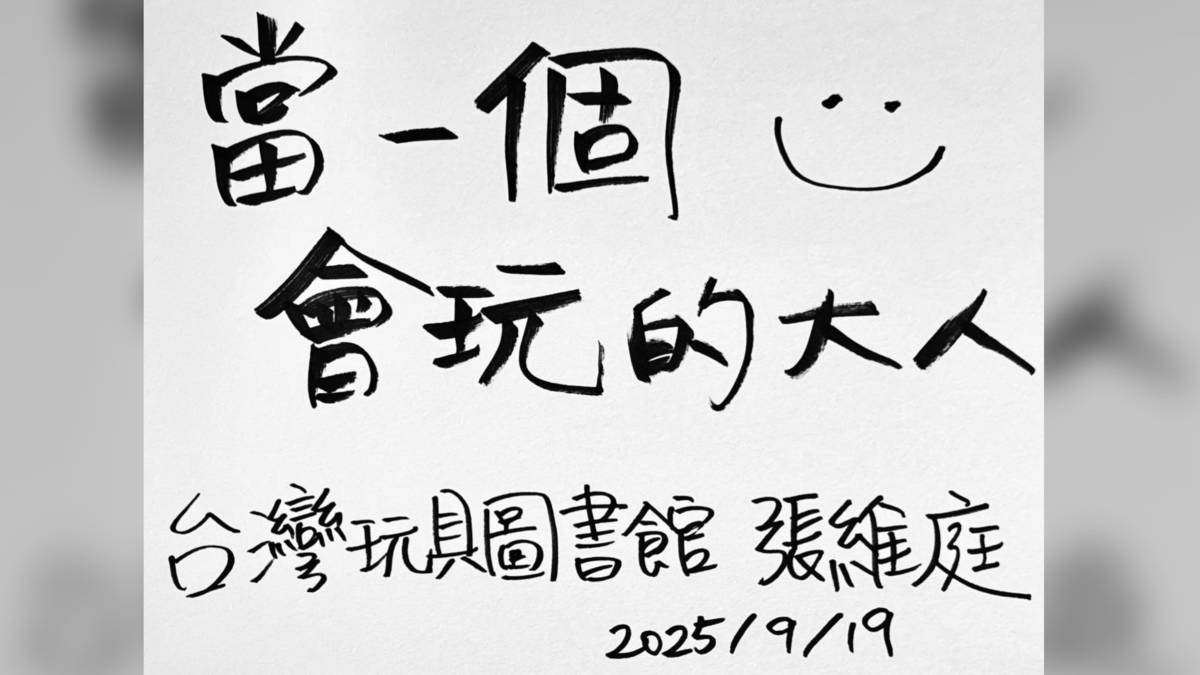 當一個
會玩的大人
台灣玩具圖書館 張維庭
2025/9/19